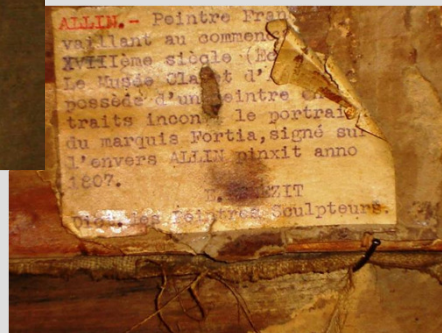 ALLIN.- Peintre Fran
vaillant au commenc
XVIIIème siècle (Ec
Le Musée d'
possède d'un peintre
traits incon le portrai
du marquis Fortia, signé sur
l'envers ALLIN pinxit anno
1807.
des Peintres Sculpteurs.